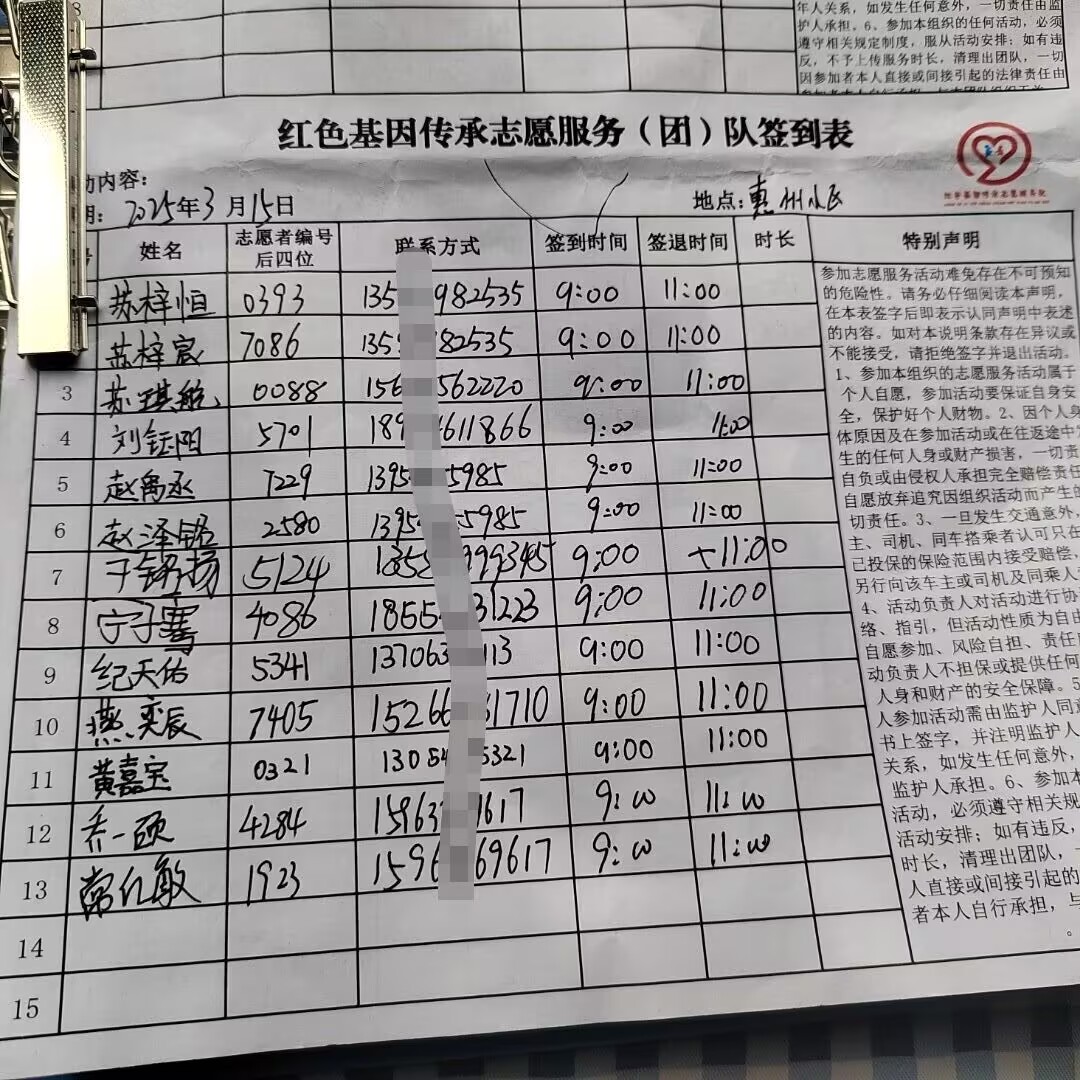 8
年人关系,如发生任何意外,一切责任由监
护人承担。6、参加本组织的任何活动,必须
遵守相关规定制度,服从活动安排;如有违
反,不予上传服务时长,清理出团队,一切
因参加者本人直接或间接引起的法律责任由
红色基因传承志愿服务(团)队签到表
动内容:
期: 2025年3月15日
地点:惠州小区
号 姓名 志愿者编号后四位 联系方式 签到时间 签退时间 时长 特别声明
苏梓恒 0393 135 982535 9:00 11:00
苏梓宸 7086 135 82535 9:00 11:00
3 苏琪航 0088 156 562220 9:00 11:00
4 刘钰阳 5701 189 611866 9:00 11:00
5 赵禹丞 7229 1395 5985 9:00 11:00
6 赵泽铭 2580 1395 5985 9:00 11:00
7 于铭扬 5124 1358 999345 9:00 11:00
8 宁子骞 4086 1855 31223 9:00 11:00
9 纪天佑 5341 13706 113 9:00 11:00
10 燕奕辰 7405 15266 1710 9:00 11:00
11 黄嘉宝 0321 13054 5321 9:00 11:00
12 乔一颐 4284 15963 1617 9:00 11:00
13 常仁敏 1923 1596 69617 9:00 11:00
14
15
参加志愿服务活动难免存在不可预知
的危险性。请务必仔细阅读本声明,
在本表签字后即表示认同声明中表述
的内容。如对本说明条款存在异议或
不能接受,请拒绝签字并退出活动。
1、参加本组织的志愿服务活动属于
个人自愿,参加活动要保证自身安
全,保护好个人财物。2、因个人身
体原因及在参加活动或在往返途中
生的任何人身或财产损害,一切责
自负或由侵权人承担完全赔偿责任
自愿放弃追究因组织活动而产生的
切责任。3、一旦发生交通意外,
主、司机、同车搭乘者认可只在
已投保的保险范围内接受赔偿,
另行向该车主或司机及同乘人
4、活动负责人对活动进行协
络、指引,但活动性质为自由
自愿参加、风险自担、责任
动负责人不担保或提供任何
人身和财产的安全保障。5
人参加活动需由监护人同意
书上签字,并注明监护人
关系,如发生任何意外,
监护人承担。6、参加本
活动,必须遵守相关规
活动安排;如有违反,
时长,清理出团队,一
人直接或间接引起的
者本人自行承担,与
。